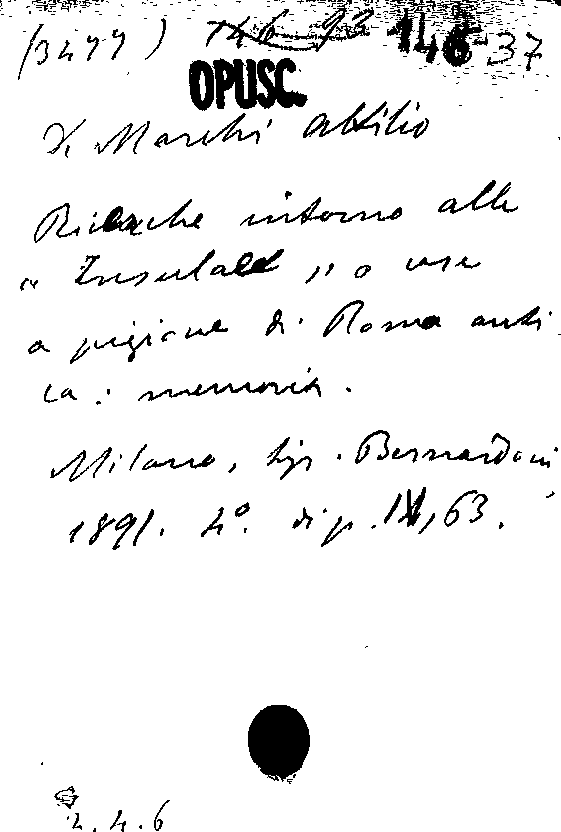 (3477) 146-93 146-37
OPUSC.
De Marchi Attilio
Ricerche intorno alle
"Insulae" o case
a pigione di Roma anti
ca: memoria.
Milano, tip. Bernardoni,
1891. 4°. di p. , 63.
2.4.6